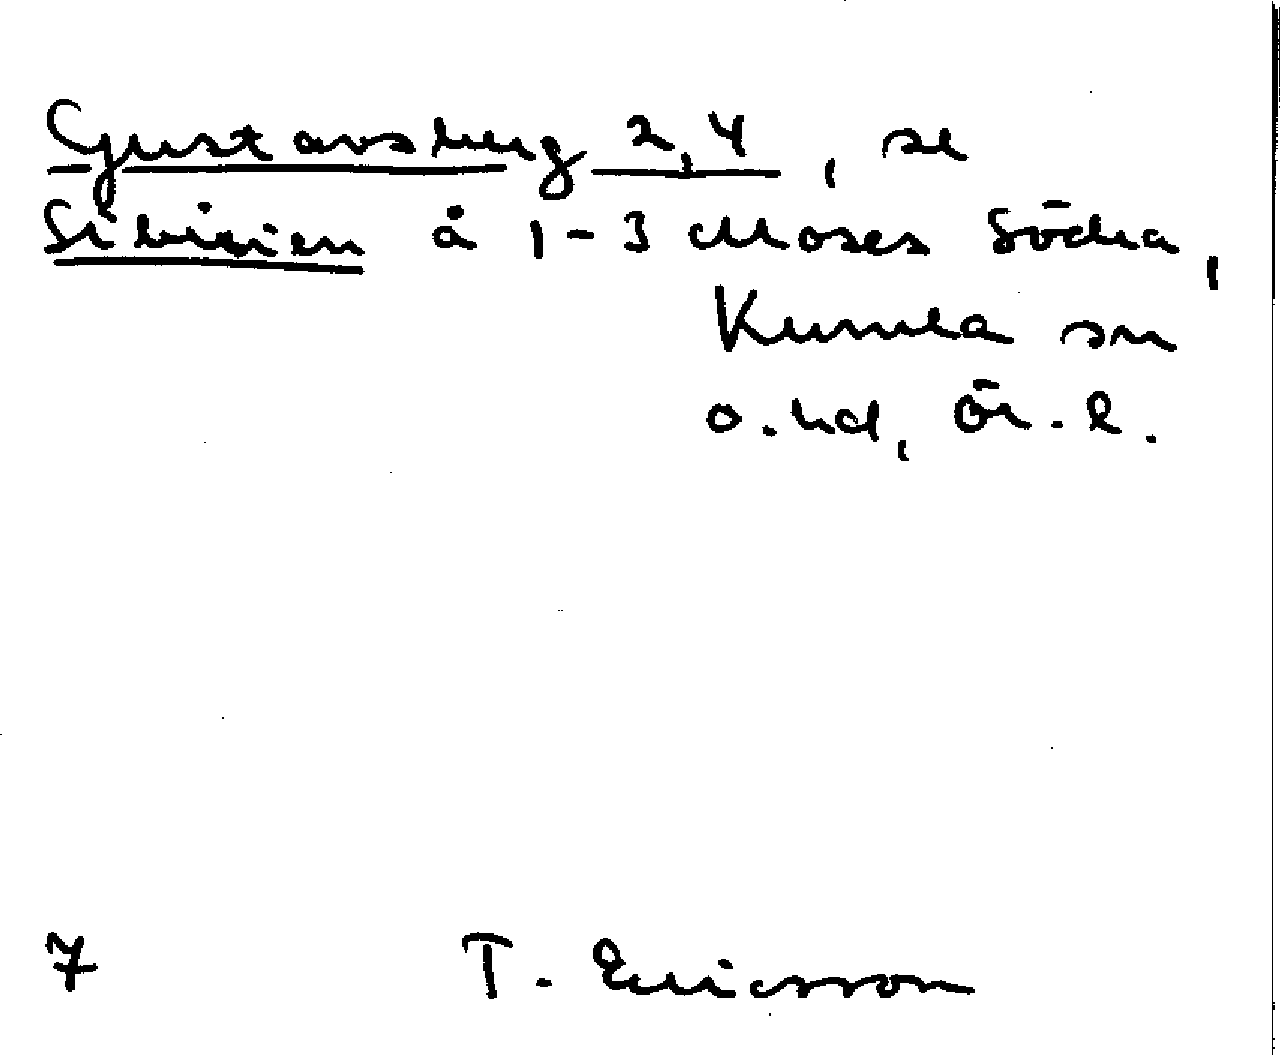 Gustavsberg 2,4, se
Sibirien å 1-3 Moses Södra,
Kumla sn
o. hd, Ör. l.
7 T. Ericsson